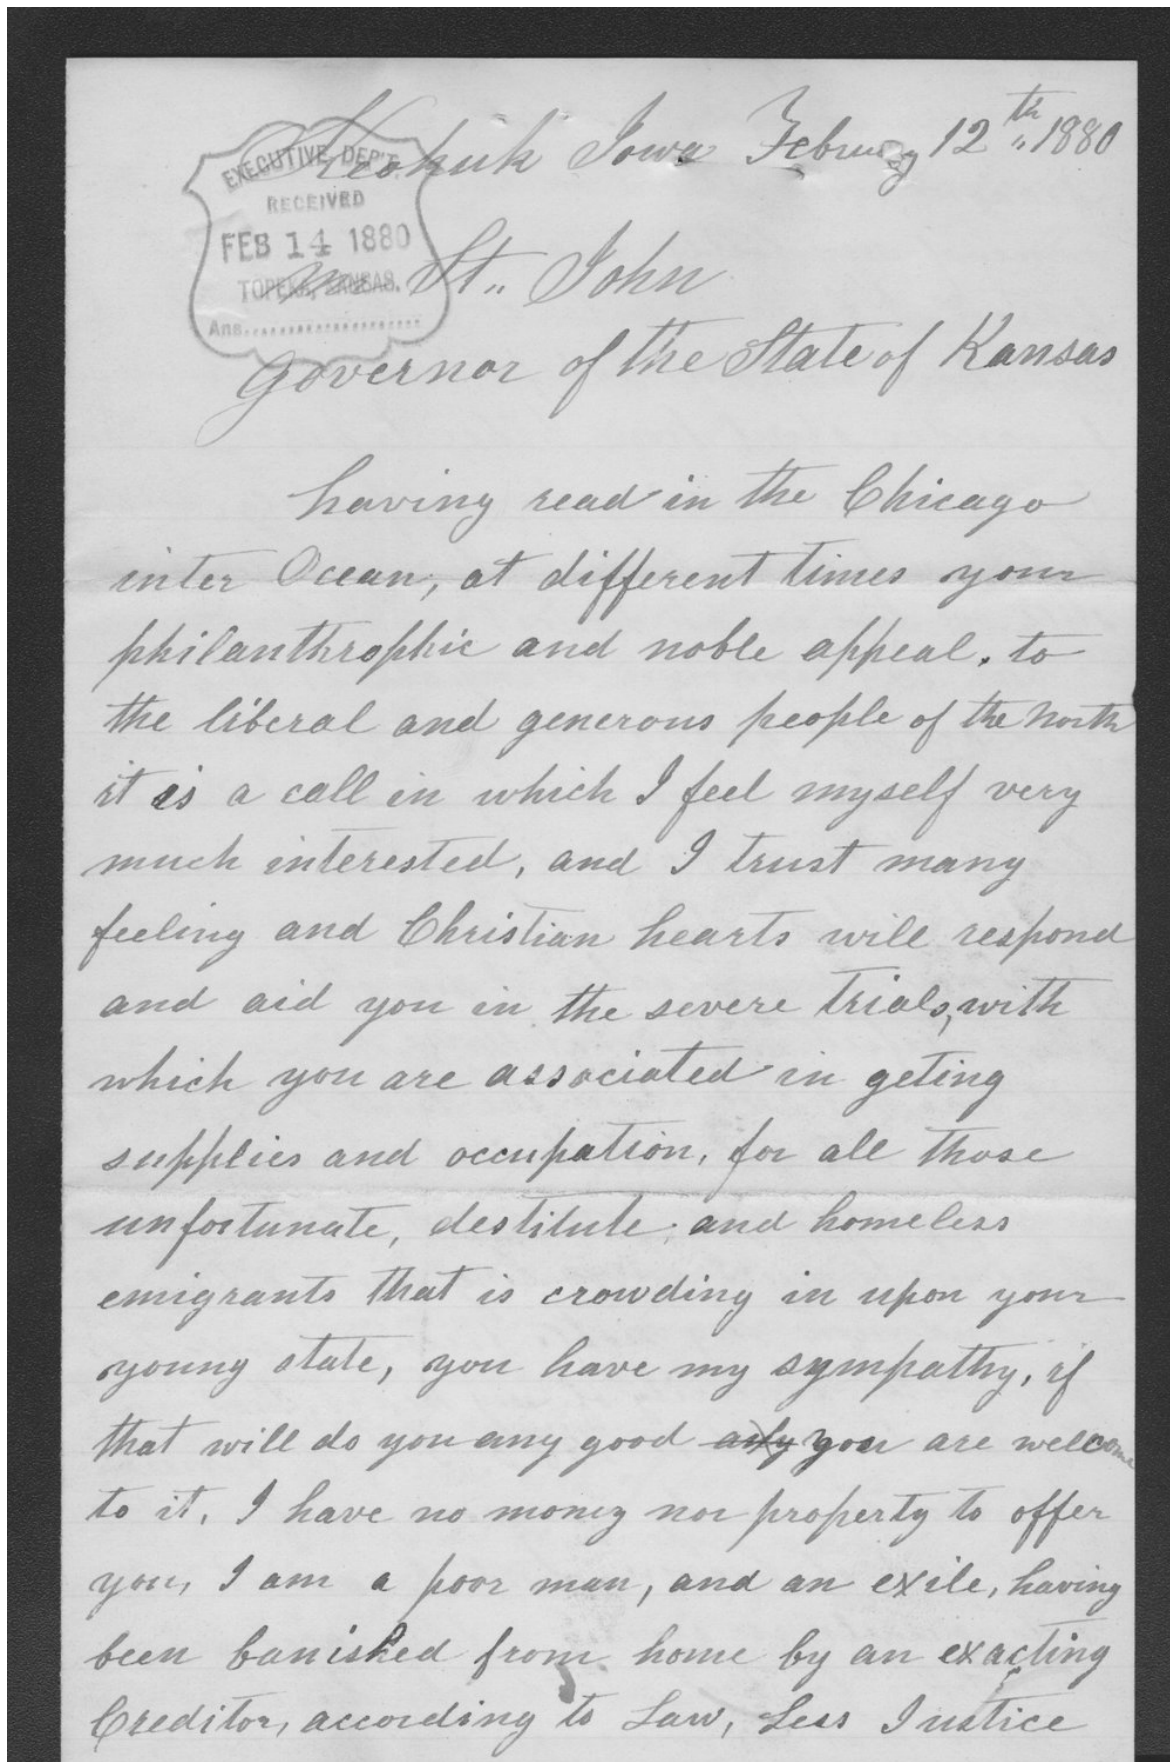 Keokuk Iowa Februay 12th 1880
EXECUTIVE DEP'T.
RECEIVED
FEB 14 1880
TOPEKA, KANSAS.
Ans.....................
Mr St. John
Governor of the State of Kansas
having read in the Chicago
inter Ocean, at different times your
philanthrophic and noble appeal. to
the liberal and generous people of the North
it is a call in which I feel myself very
much interested, and I trust many
feeling and Christian hearts will respond
and aid you in the severe trials, with
which you are associated in geting
supplies and occupation, for all those
unfortunate, destitute, and homeless
emigrants that is crowding in upon your
young state, you have my sympathy, if
that will do you any good you are welcome
to it, I have no money nor property to offer
you, I am a poor man, and an exile, having
been banished from home by an exacting
Creditor, according to Law, Less Justice